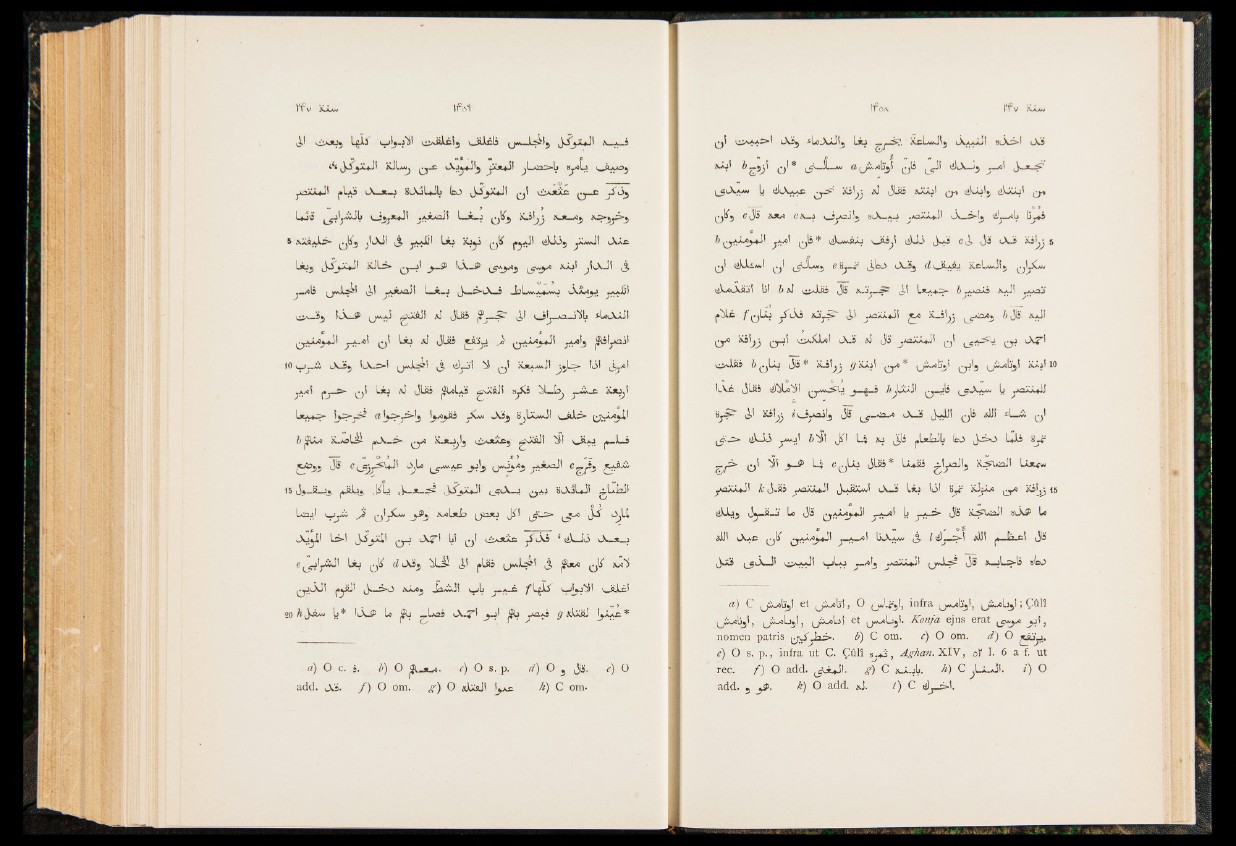 سنة ٢۴٧ ١۴٥٨
قد اخذه النبيذ والساعة يخرج بغا والندماء وقد احببت ان
تجعل امر ولدك الىّ فان أوتامش a سألنى ان * ازوّج b ابنه
من ابنتك وابنك من ابنته فقال له زرافة نحن عبيدك يا سيّدى
فمُرْنا بامرك واخذ المنتصر بيده وانصرف به c معه قال c وكان
5 زرافة قد قال لى c قبل ذلك ارفق بنفسك * فان امير المؤمنين b
سكران والساعة يفيق d وقد دعانى تمرة e وسألنى ان اسئلك ان
تصير اليه فنصير b جميعا الى حجرته قال فقلت له b انا اتقدّمك
اليه قال b ومضى زرافة مع المنتصر الى حجرته فذكر بنان f غلام
احمد بن يحيى ان المنتصر قال له قد املكتُ ابن زرافة من
10 ابنة اوتامش وابن اوتامش * من ابنة g زرافة * قال بنان b فقلت
للمنتصر يا سيّدى فاين النثار h فهو يحسّن الاملاك فقال غدا
ان شاء الله فان الليل قد مضى قال وانصرف i زرافة الى حجرة
تمرة فلمّا دخل دعا بالطعام فأتى به فما اكل الّا b ايسر ذلك حتى
سمعنا الضجّة والصراخ فقمنا * فقال بنان c فما هو الّا ان خرج
15 زرافة من منزلة تمرة اذا بغا قد استقبل المنتصر فقال k المنتصر
ما هذه الضجّة قال خير يا امير المؤمنين قال ما تقول ويلك
قال اعظم الله أجرك l فى سيّدنا امير المؤمنين كان عبد الله
دعاه فاجابه قال فجلس المنتصر وامر بباب البيت الذى قتل
a) C اوتامش et اتامش, O اوتمامس, infra اوتامس, اوبامش; Çûlî
اوتامش, اوبامش, اوبامش et اوتامس. Konja ejus erat ابو موسى,
nomen patris b) C om. c) O om. d) O يرتفع.
e) O s. p., infra ut C. Çûlî ثمره, Aghan. XIV, of l. 6 a f. ut
rec. f) O add. المغنى. g) C بابنة. h) C i) O
add. هو و. k) O add. له. l) C اخرك.
سنة ٢۴٧ ١۴٥٩
فيه المتوكّل والمجلس فاغلق واغلقت الابواب كلها وبعث الى
وصيف يأمره باحضار المعتزّ والمؤيّد عن رسالة المتوكّل
وذُكر عن عَثْعَث ان المتوكّل دعا بالمائدة بعد قيام المنتصر
وخروجه ومعه زرافة وكان بُغا الصغير المعروف بالشرابىّ قائما
5 عند الستر وذلك اليوم كان نوبة بغا الكبير فى الدار وكان خليفته
فى الدار ابنه موسى وموسى هذا هو ابن خالة المتوكّل وبغا
الكبير يومئذ بسُمَيْساط فدخل بغا الصغير الى المجلس فامر
الندماء بالانصراف الى حجرهم فقال له الفتح ليس هذا وقت
انصرافهم وامير المؤمنين لم يرتفع فقال له بغا ان امير المؤمنين
10 امرنى اذا جاوز السبعة ان لا اترك فى المجلس احدا وقد شرب
اربعة عشر رطلا فكره الفتح قيامهم فقال له بغا ان حرم امير
المؤمنين خلف الستارة وقد سكر فقوموا واخرجوا a فخرجوا جميعا
فلم يبق الّا الفتح وعثعث واربعة من خدم الخاصّة منهم b
شفيع وفَرَج c الصغير ومؤنس وابو عيسى مارد المُحْرِزىّ c قال ووضع
15 الطبّاخ المائدة بين يدى المتوكّل فجعل يأكل ويلقم ويقول
لمارد كُلْ معى حتى اكل بعض طعامه وهو سكران ثم شرب ايضا
بعد ذلك، فذَكر عثعث ان ابا احمد بن المتوكّل اخا المؤيّد
لامّه كان معهم فى المجلس فقام الى الخلاء وقد d كان بغا الشرابىّ e
اغلق الابواب كلها f غير باب الشطّ ومنه دخل القوم الذين
20 * عُيّنوا لقتله g فبصر بهم ابو احمد فصاح بهم ما هذا * يا سفل h
a) O c. ف. b) O معهم. c) O s. p. d) O قال و. e) O
add. قد. f) O om. g) O عموا لقتله h) C om.